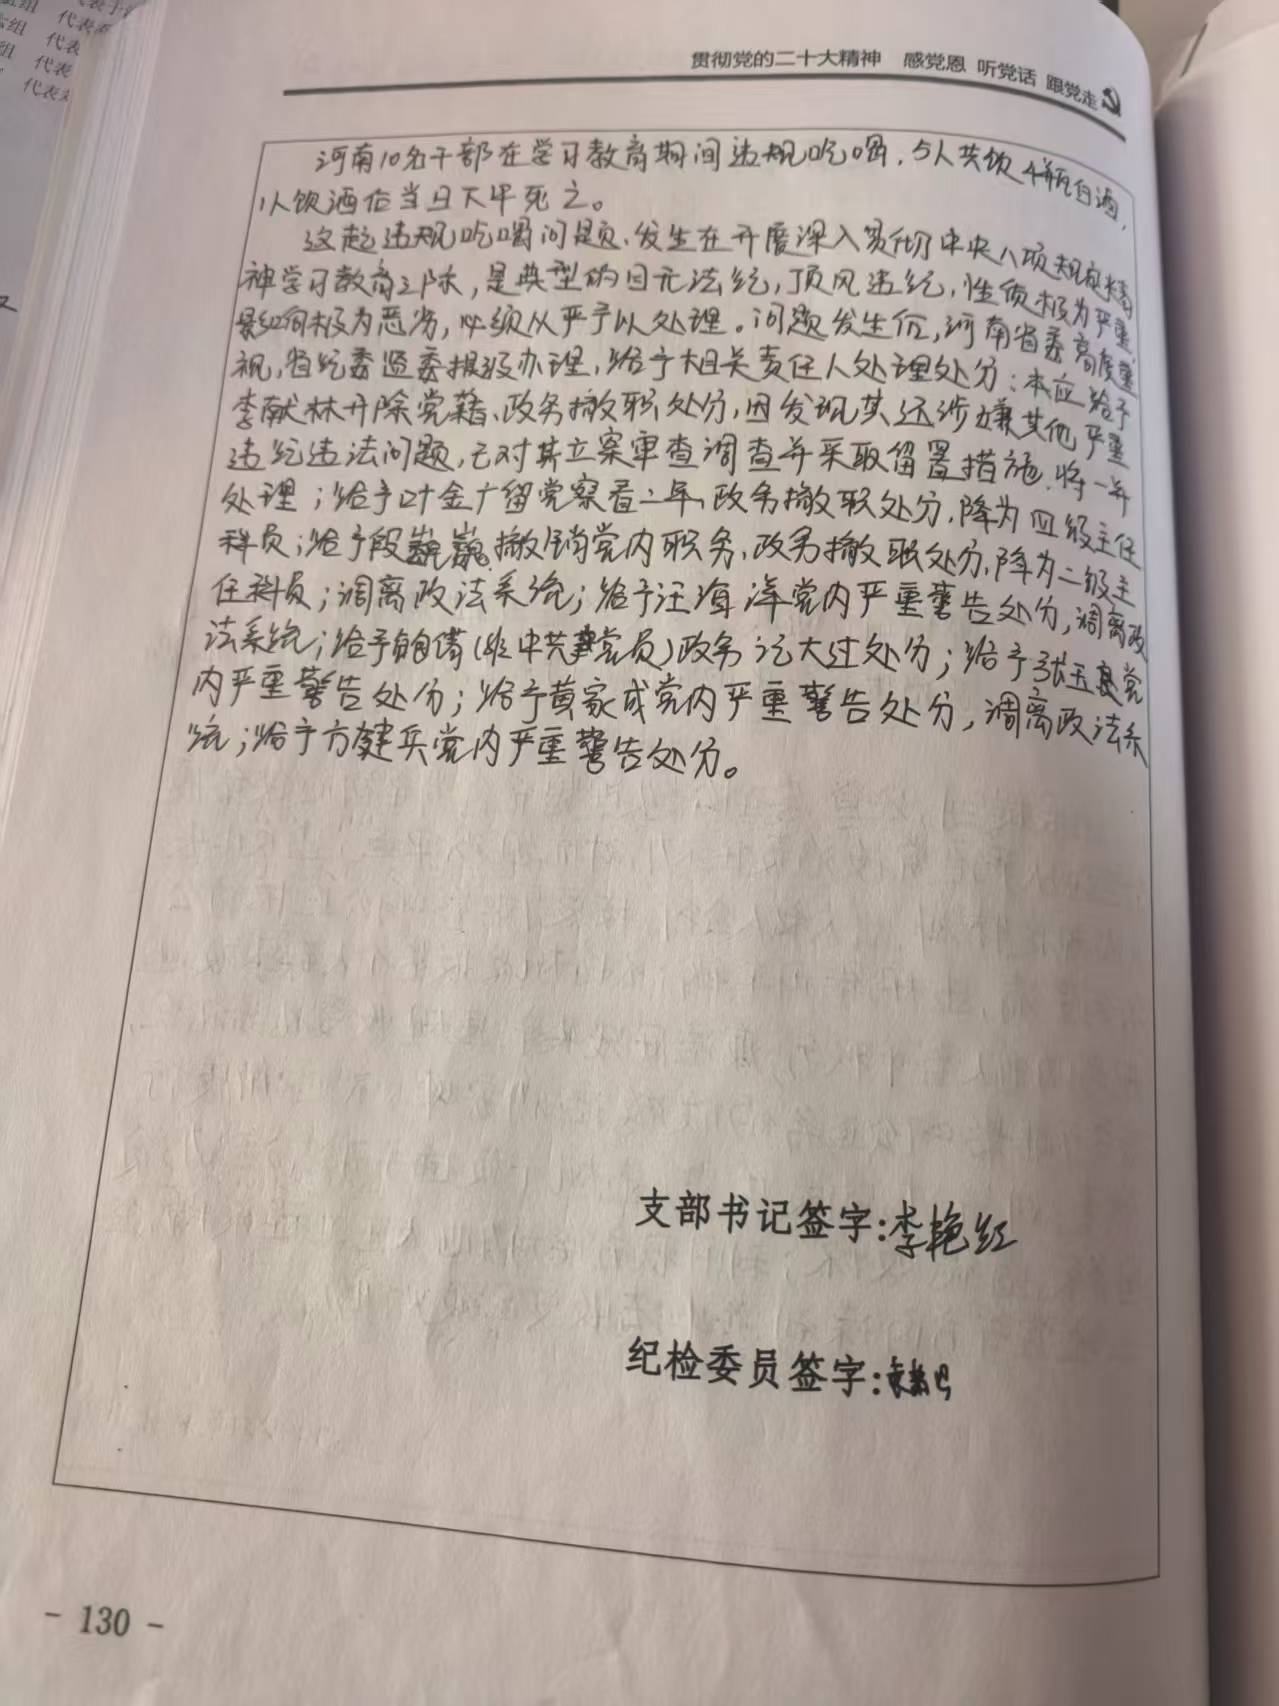 五组 代表
六组 代表
组 代表
代表
贯彻党的二十大精神 感党恩 听党话 跟党走
河南10名干部在学习教育期间违规吃喝，5人共饮4瓶白酒，
1人饮酒后当日下午死亡。
这起违规吃喝问题，发生在开展深入贯彻中央八项规定精
神学习教育之际，是典型的目无法纪，顶风违纪，性质极为严重，
影响极为恶劣，必须从严予以处理。问题发生后，河南省委高度重
视，省纪委监委提级办理，给予相关责任人处理处分：本应给予
李献林开除党籍、政务撤职处分，因发现其还涉嫌其他严重
违纪违法问题，已对其立案审查调查并采取留置措施，将一并
处理；给予叶金广留党察看二年、政务撤职处分，降为四级主任
科员；给予段巍巍撤销党内职务、政务撤职处分，降为二级主
任科员；调离政法系统；给予汪海洋党内严重警告处分，调离政
法系统；给予鲍倩(非中共党员)政务记大过处分；给予张玉良党
内严重警告处分；给予黄家成党内严重警告处分，调离政法系
统；给予方健兵党内严重警告处分。
支部书记签字：李艳红
纪检委员签字：
- 130 -